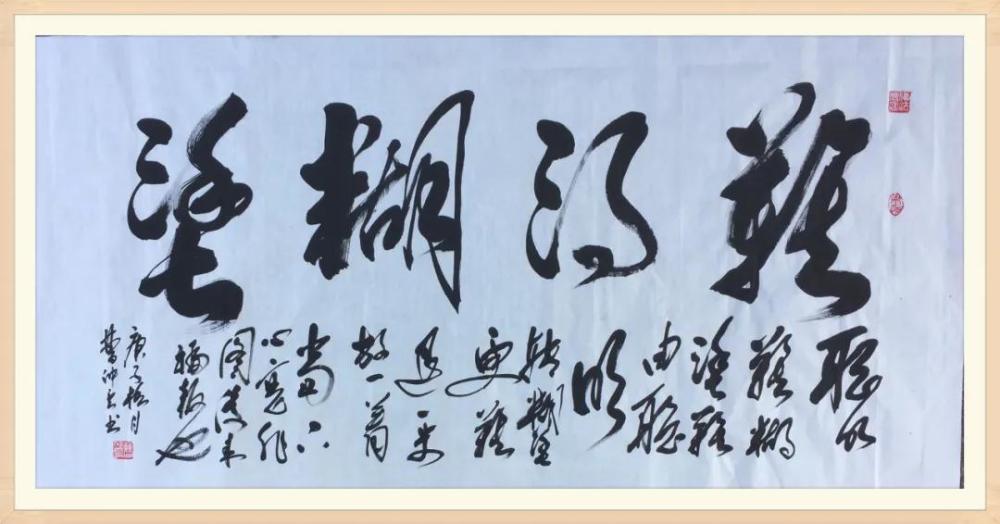 難得糊塗
聰明
難糊
塗難
由聰
明
轉糊塗
更難
退一步
放一着
當下
心安非
圖後來
福報也
庚子